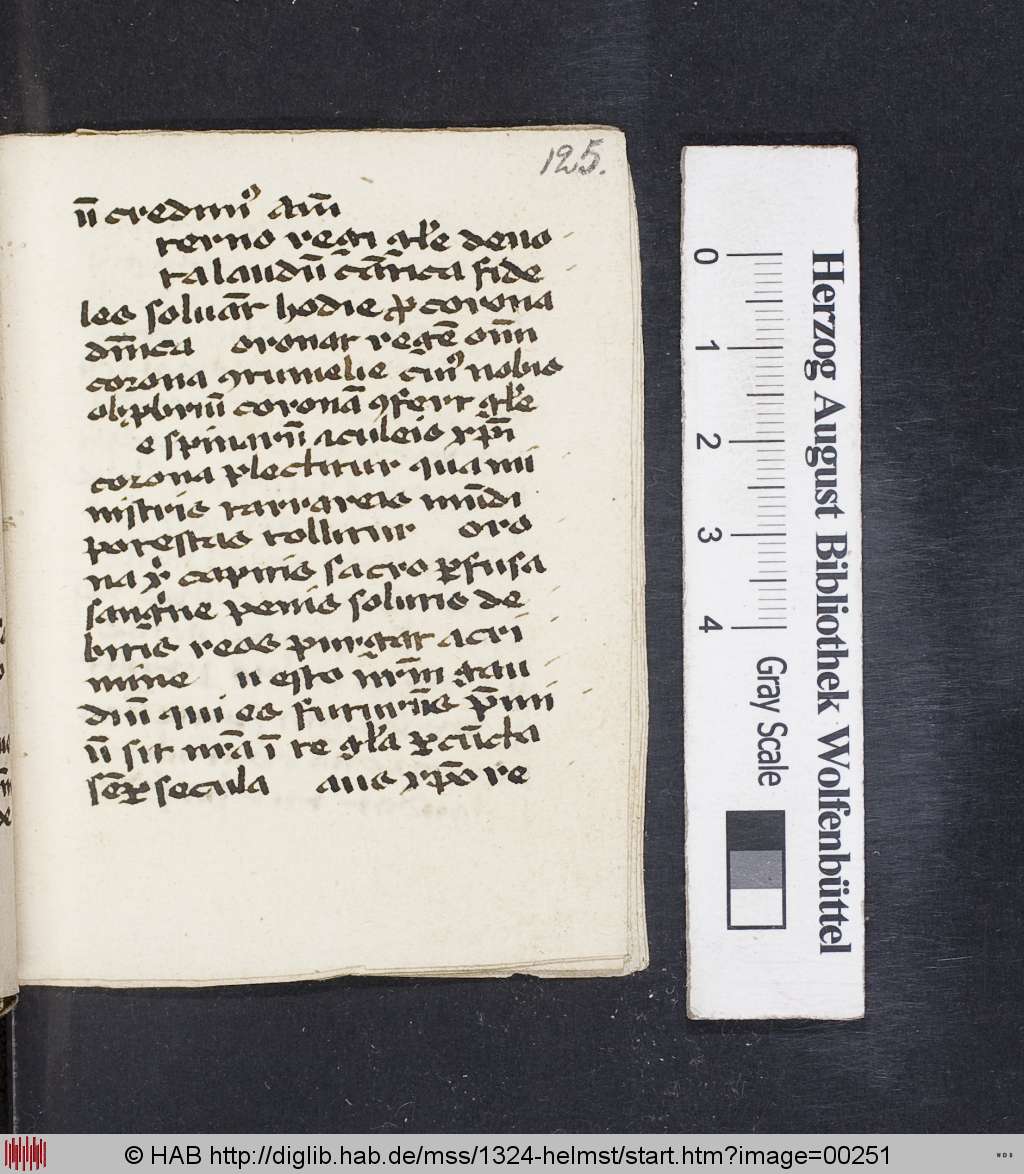 125.
ū credim⁹ Am̄
terno regi gl̄e deuo
ta laudū cātica fide
les soluāt hodie ꝓ corona
dn̄ica oronat regē om̄
corona ꝯtumelie cui⁹ nobis
obꝓbriū coronā ꝯfert gl̄e
e spinarū aculeis xp̄i
corona plectitur qua mi
nistris tartareis mūdi
potestas tollitur oro
na xp̄i capitis sacro ꝑfusa
sanguine penis solutis de
bitis reos purgat a cri
mine u esto nr̄m gau
diū qui es futurus p̄mi
ū sit nr̄a ī te gl̄a ꝑ cūcta
semꝑ secula aus xp̄o re
Herzog August Bibliothek Wolfenbüttel
0 1 2 3 4
Gray Scale
© HAB http://diglib.hab.de/mss/1324-helmst/start.htm?image=00251